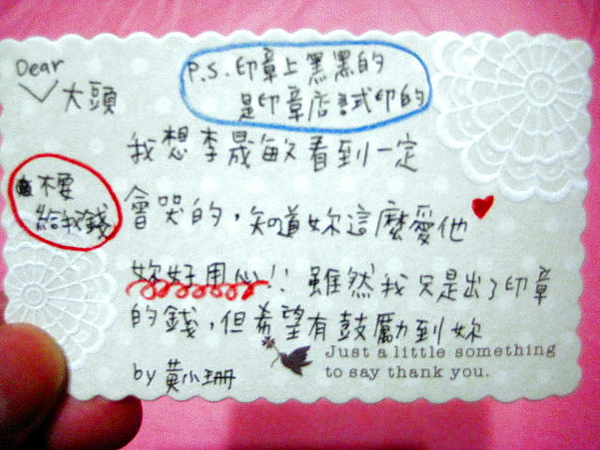 Dear
大頭
P.S. 印章上黑黑的
是印章店試印的
我想李晟敏看到一定
不要
給我錢
會哭的，知道妳這麼愛他
妳好用心!! 雖然我只是出了印章
的錢，但希望有鼓勵到妳
by 黃小珊
Just a little something
to say thank you.